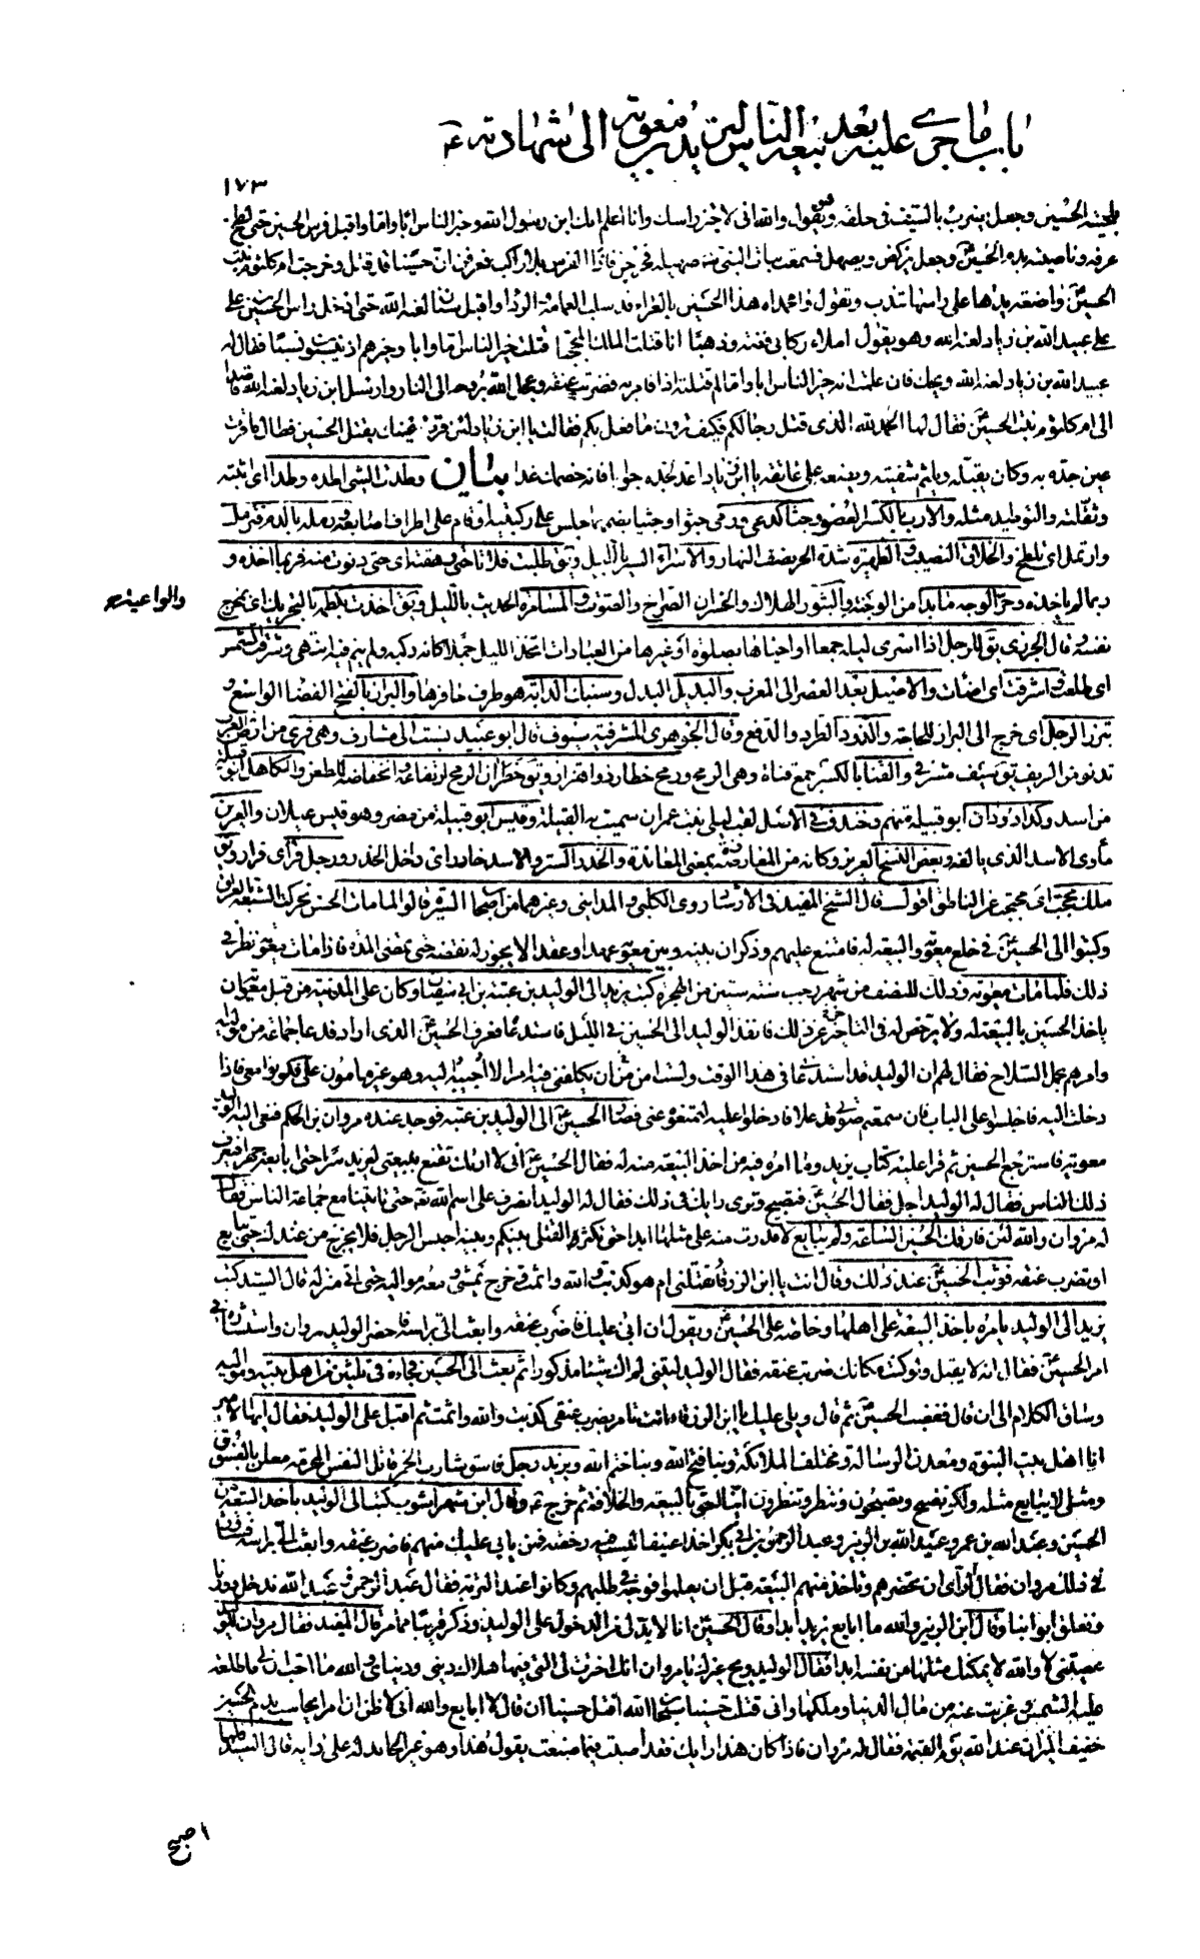 باب ما جرى عليه بعد بيعة الناس ليزيد بن معوية الى شهادته ع
١٧٣
بلحية الحسين وجعل يضرب بالسيف في حلقه وهو يقول والله اني لاجز راسك وانا اعلم انك ابن رسول الله وخير الناس ابا واما واقبل فرس الحسين حتى لطخ
عرفه وناصيته بدم الحسين وجعل يركض ويصهل فسمعت بنات النبي صهيله فخرجن فاذا الفرس بلا راكب فعرفن ان حسينا قد قتل وخرجت ام كلثوم بنت
الحسين واضعة يدها على راسها تندب وتقول وا محمداه هذا الحسين بالعراء قد سلب العمامة والرداء واقبل سنان لعنه الله حتى ادخل راس الحسين بن علي
على عبيد الله بن زياد لعنه الله وهو يقول املاء ركابي فضة وذهبا انا قتلت الملك المحجبا قتلت خير الناس اما وابا وخيرهم اذ ينسبون نسبا فقال له
عبيد الله بن زياد لعنه الله ويحك فان علمت انه خير الناس ابا واما لم قتلته اذا فامر به فضربت عنقه وعجل الله بروحه الى النار وارسل ابن زياد لعنه الله قاصدا
الى ام كلثوم بنت الحسين فقال لها الحمد لله الذي قتل رجالكم فكيف ترون ما فعل بكم فقالت يا ابن زياد لئن قرت عينك بقتل الحسين فطال ما قرت
عين جده به وكان يقبله ويلثم شفتيه ويضعه على عاتقه يا ابن زياد اعد لجده جوابا فانه خصمك غدا بيان وطدت الشيء اطده وطدا اي اثبته
وثقلته والتوطيد مثله والارب بالكسر العضو وجثا كدعى ورمى جثوا وجثيا بضمهما جلس على ركبتيه او قام على اطراف اصابعه ورمله بالدم فترمل
وارتمل اي تلطخ والخلاق النصيب والظهيرة شدة الحر نصف النهار والاسراء السير بالليل ويق طلبت فلانا حتى رهقته اي حتى دنوت منه فربما اخذه و
ربما لم ياخذه وحر الوجه ما بدا من الوجنة والثبور الهلاك والخسران الصراخ والصوت والمسامرة الحديث بالليل ويق اخذت بكظمه بالتحريك اي بمخرج
والواعية صح
نفسه وقال الجزري يق للرجل اذا اسرى ليله جمعا او احياها بصلوة او غيرها من العبادات اتخذ الليل جملا كانه ركبه ولم ينم فيه انتهى وشرقت الشمس
اي طلعت واشرقت اي اضاءت والاصيل بعد العصر الى المغرب والبديل البدل وسنبك الدابة هو طرف حافرها والبراز بالفتح الفضا الواسع و
تبرز الرجل اي خرج الى البراز للحاجة والذود الطرد والدفع وقال الجوهري المشرفية سيوف قال ابو عبيد نسبت الى مشارف وهي قرى من ارض العرب
تدنو من الريف يق سيف مشرفي والقنا بالكسر جمع قناة وهي الرمح ورمح خطار ذو اهتزاز ويق خطران الرمح ارتفاعه وانخفاضه للطعن والكاهل ابو قبيلة
من اسد وكذا دودان ابو قبيلة منهم وخندف في الاصل لقب ليلى بنت عمران سميت به القبيلة وقيس ابو قبيلة من مضر وهو قيس عيلان والعرين
مأوى الاسد الذي يألفه وبعض النسخ العريز وكانه من المعازة بمعنى المعاندة والخدر الستر والاسد خادر اي داخل الخدر ورجل فراي فرار ويق
ملك محجب اي محتجب عن الناس اقول قال الشيخ المفيد في الارشاد روى الكلبي والمدايني وغيرهما من اصحاب السيرة قالوا لما مات الحسن تحركت الشيعة بالعراق
وكتبوا الى الحسين في خلع معوية والبيعة له فامتنع عليهم وذكر ان بينه وبين معوية عهدا وعقدا لا يجوز له نقضه حتى تمضي المدة فاذا مات معوية نظر في
ذلك فلما مات معوية وذلك للنصف من شهر رجب سنة ستين من الهجرة كتب يزيد الى الوليد بن عتبة بن ابي سفيان وكان على المدينة من قبل معوية ان
ياخذ الحسين بالبيعة له ولا يرخص له في التاخر عن ذلك فانفذ الوليد الى الحسين في الليل فاستدعاه فعرف الحسين الذي اراد فدعا جماعة من مواليه
وامرهم بحمل السلاح فقال لهم ان الوليد قد استدعاني في هذا الوقت ولست امن من ان يكلفني فيه امرا لا اجيبه اليه وهو غير مامون علي فكونوا معي فاذا
دخلت اليه فاجلسوا على الباب فان سمعتم صوتي قد علا فادخلوا عليه لتمنعوه عني فصار الحسين الى الوليد بن عتبة فوجد عنده مروان بن الحكم فنعى اليه الوليد
معوية فاسترجع الحسين ثم قرا عليه كتاب يزيد وما امره فيه من اخذ البيعة منه له فقال الحسين اني لا اراك تقنع ببيعتي ليزيد سرا حتى ابايعه جهرا فيعرف
ذلك الناس فقال له الوليد اجل فقال الحسين فتصبح وترى رايك في ذلك فقال له الوليد انصرف على اسم الله تعه حتى تاتينا مع جماعة الناس فقال
له مروان والله لئن فارقك الحسين الساعة ولم يبايع لا قدرت منه على مثلها ابدا حتى تكثر القتلى بينكم وبينه احبس الرجل فلا يخرج من عندك حتى يبايع
او تضرب عنقه فوثب الحسين عند ذلك وقال انت يا ابن الزرقاء تقتلني ام هو كذبت والله واثمت وخرج يمشي ومعه مواليه حتى اتى منزله قال السيد كتب
يزيد الى الوليد يامره باخذ البيعة على اهلها وخاصة على الحسين ويقول ان ابى عليك فاضرب عنقه وابعث الي براسه فاحضر الوليد مروان واستشاره في
امر الحسين فقال انه لا يقبل ولو كنت مكانك ضربت عنقه فقال الوليد ليتني لم اك شيئا مذكورا ثم بعث الى الحسين فجاءه في ثلثين من اهل بيته ومواليه
وساق الكلام الى ان قال فغضب الحسين ثم قال ويلي عليك يا ابن الزرقاء انت تامر بضرب عنقي كذبت والله واثمت ثم اقبل على الوليد فقال ايها الامير
انا اهل بيت النبوة ومعدن الرسالة ومختلف الملائكة وبنا فتح الله وبنا ختم الله ويزيد رجل فاسق شارب الخمر قاتل النفس المحرمة معلن بالفسق
ومثلي لا يبايع مثله ولكن نصبح وتصبحون وننظر وتنظرون اينا احق بالبيعة والخلافة ثم خرج ع وقال ابن شهراشوب كتب الى الوليد باخذ البيعة من
الحسين وعبد الله بن عمر وعبد الله بن الزبير وعبد الرحمن بن ابي بكر اخذا عنيفا ليست فيه رخصة فمن يابى عليك منهم فاضرب عنقه وابعث الي براسه فشاور
في ذلك مروان فقال الراي ان تحضرهم وتاخذ منهم البيعة قبل ان يعلموا فوجه في طلبهم وكانوا عند التربة فقال عبد الرحمن وعبد الله ندخل دورنا
ونغلق ابوابنا وقال ابن الزبير والله ما ابايع يزيد ابدا وقال الحسين انا لا بد لي من الدخول على الوليد وذكر قريبا مما مر قال المفيد فقال مروان للوليد
عصيتني لا والله لا يمكنك مثلها من نفسه ابدا فقال الوليد ويح غيرك يا مروان انك اخترت لي التي فيها هلاك ديني ودنياي والله ما احب ان لي ما طلعت
عليه الشمس وغربت عنه من مال الدنيا وملكها واني قتلت حسينا سبحان الله اقتل حسينا ان قال لا ابايع والله اني لاظن ان امرءا يحاسب بدم الحسين
خفيف الميزان عند الله يوم القيمة فقال له مروان فاذا كان هذا رايك فقد اصبت فيما صنعت يقول هذا وهو غير الحامد له على رايه قال السيد فلما
اصبح